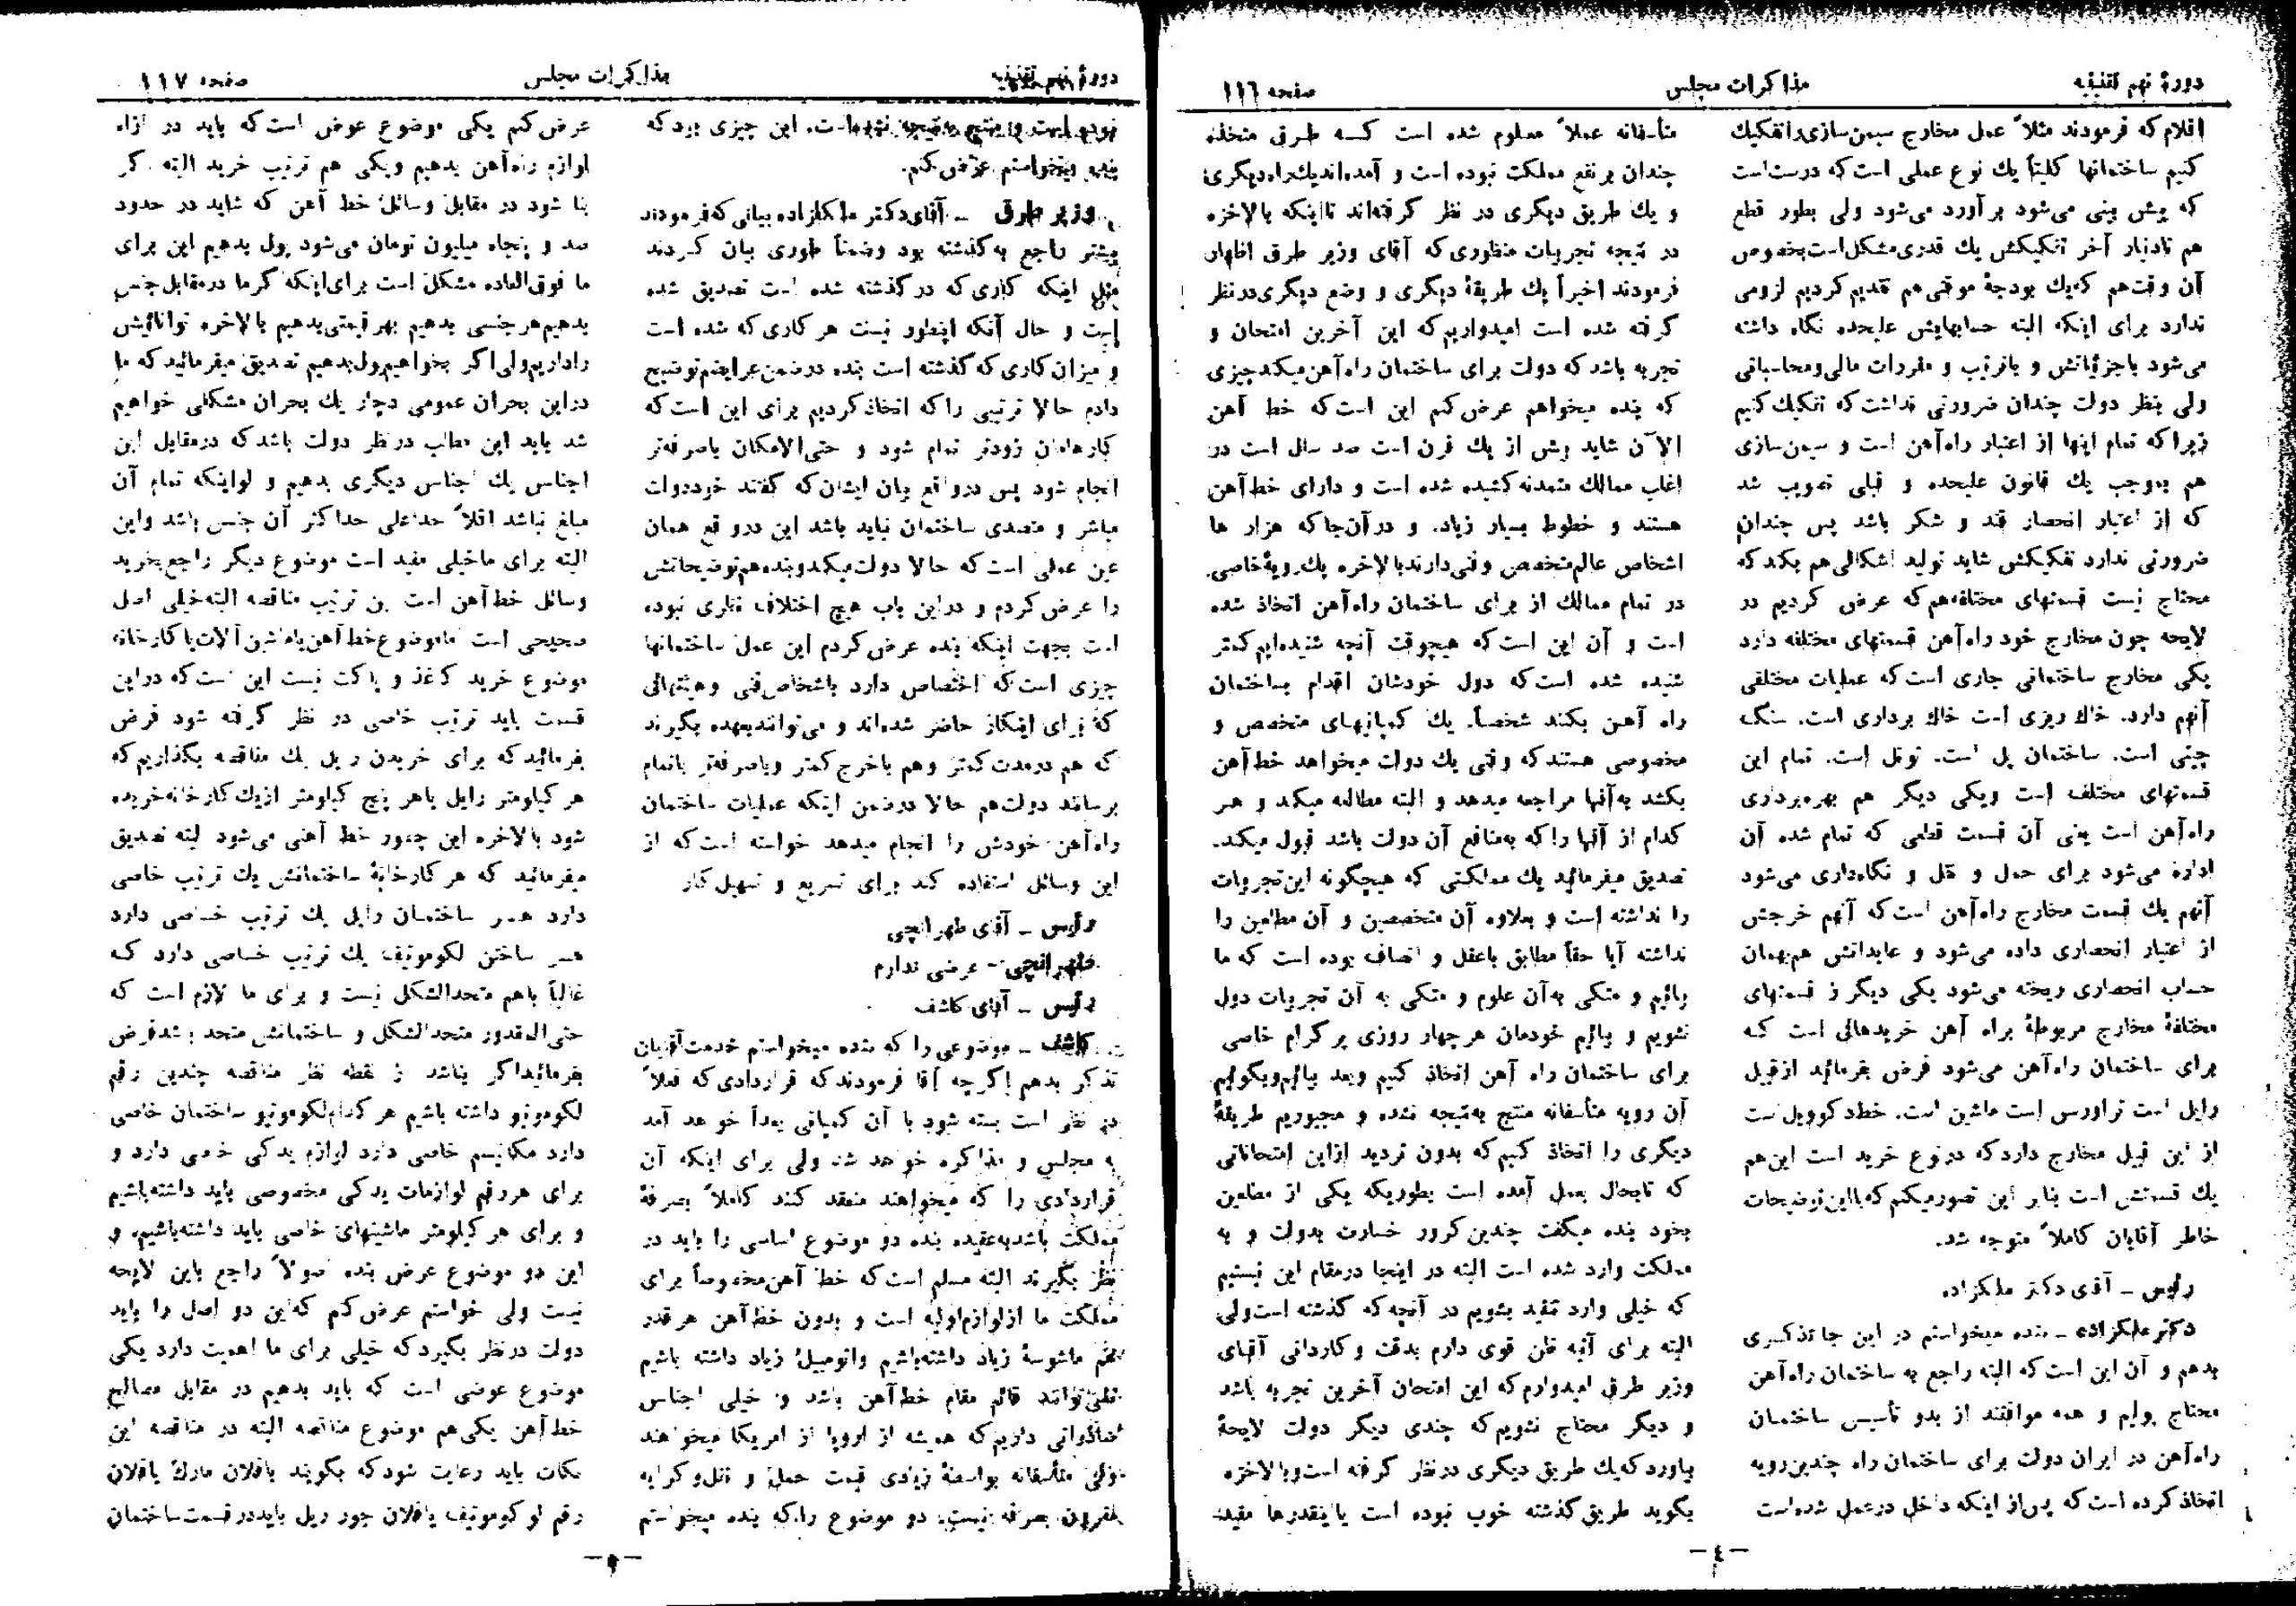 دورهٔ نهم تقنینیه
مذاکرات مجلس
صفحه ۱۱٦
اقلام که فرمودند مثلاً عمل مخارج سیمن‌سازی را تفکیک
کنیم ساختمانها کلیتاً یك نوع عملی است که درست است
که پیش بینی می‌شود برآورد می‌شود ولی بطور قطع
هم تا دینار آخر تفکیکش یك قدری مشکل است بخصوص
آن وقت هم که یك بودجهٔ موقتی هم تقدیم کردیم لزومی
ندارد برای اینکه البته حسابهایش علیحده نگاه داشته
می‌شود با جزئیاتش و با ترتیب و مقررات مالی و محاسباتی
ولی بنظر دولت چندان ضرورتی نداشت که تفکیك کنیم
زیرا که تمام اینها از اعتبار راه‌آهن است و سیمن‌سازی
هم بموجب یك قانون علیحده و قبلی تصویب شد
که از اعتبار انحصار قند و شکر باشد پس چندان
ضرورتی ندارد تفکیکش شاید تولید اشکالی هم بکند که
محتاج نیست قسمتهای مختلفه هم که عرض کردیم در
لایحه چون مخارج خود راه‌آهن قسمتهای مختلفه دارد
یکی مخارج ساختمانی جاری است که عملیات مختلفی
آنهم دارد. خاك ریزی است خاك برداری است. سنگ
چینی است. ساختمان پل است. تونل است. تمام این
قسمتهای مختلف است ویکی دیگر هم بهره‌برداری
راه‌آهن است یعنی آن قسمت قطعی که تمام شده آن
اداره می‌شود برای حمل و نقل و نگاه‌داری می‌شود
آنهم یك قسمت مخارج راه‌آهن است که آنهم خرجش
از اعتبار انحصاری داده می‌شود و عایداتش هم بهمان
حساب انحصاری ریخته می‌شود یکی دیگر از قسمتهای
مختلفهٔ مخارج مربوطهٔ براه آهن خریدهائی است که
برای ساختمان راه‌آهن می‌شود فرض بفرمائید از قبیل
رایل است تراورس است ماشین است. است
از این قبیل مخارج دارد که در نوع خرید است این هم
یك قسمتش است بنابر این تصور میکنم که با این توضیحات
خاطر آقایان کاملاً متوجه شد.
رئیس ــ آقای دکتر ملکزاده
دکتر ملکزاده ــ بنده میخواستم در این جا تذکری
بدهم و آن این است که البته راجع به ساختمان راه‌آهن
محتاج بولیم و همه موافقند از بدو تأسیس ساختمان
راه‌آهن در ایران دولت برای ساختمان راه چندین رویه
اتخاذ کرده است که پس از اینکه داخل در عمل شده است
متأسفانه عملاً معلوم شده است که طرق متخذه
چندان بر نفع مملکت نبوده است و آمده‌اند یك راه دیگری
و یك طریق دیگری در نظر گرفته‌اند تا اینکه بالاخره
در نتیجه تجربیات منظوری که آقای وزیر طرق اظهار
فرمودند اخیراً یك طریقهٔ دیگری و وضع دیگری در نظر
گرفته شده است امیدواریم که این آخرین امتحان و
تجربه باشد که دولت برای ساختمان راه‌آهن میکند چیزی
که بنده میخواهم عرض کنم این است که خط آهن
الآن شاید بیش از یك قرن است صد سال است در
اغلب ممالك متمدنه کشیده شده است و دارای خط آهن
هستند و خطوط بسیار زیاد. و در آن‌جا که هزار ها
اشخاص عالم متخصص و فنی دارند بالاخره یك رویهٔ خاصی
در تمام ممالك از برای ساختمان راه‌آهن اتخاذ شده
است و آن این است که هیچوقت آنچه شنیده‌ایم کمتر
شنیده شده است که دول خودشان اقدام بساختمان
راه آهن بکنند شخصاً. یك کمپانیهای متخصص و
مخصوصی هستند که وقتی یك دولت میخواهد خط آهن
بکشد به آنها مراجعه میدهد و البته مطالعه میکند و هر
کدام از آنها را که بمنافع آن دولت باشد قبول میکند.
تصدیق میفرمائید یك مملکتی که هیچگونه این تجربیات
را نداشته است و بعلاوه آن متخصصین و آن مطلعین را
نداشته آیا حقاً مطابق با عقل و انصاف بوده است که ما
بیائیم و متکی به آن علوم و متکی به آن تجربیات دول
نشویم و بیائیم خودمان هر چهار روزی پرگرام خاصی
برای ساختمان راه آهن اتخاذ کنیم و بعد بیائیم و بگوئیم
آن رویه متأسفانه منتج به نتیجه نشده و مجبوریم طریقهٔ
دیگری را اتخاذ کنیم که بدون تردید از این امتحاناتی
که تابحال بعمل آمده است بطوریکه یکی از مطلعین
بخود بنده میگفت چندین کرور خسارت بدولت و به
مملکت وارد شده است البته در اینجا در مقام این نیستیم
که خیلی وارد تنقید بشویم در آنچه که گذشته است ولی
البته برای آتیه ظن قوی دارم بدقت و کاردانی آقای
وزیر طرق امیدوارم که این امتحان آخرین تجربه باشد
و دیگر محتاج نشویم که چندی دیگر دولت لایحهٔ
بیاورد که یك طریق دیگری در نظر گرفته است و بالاخره
بگوید طریق گذشته خوب نبوده است یا اینقدرها مفید
ــ ٤ ــ
دورهٔ نهم تقنینیه
مذاکرات مجلس
صفحه ۱۱۷
نبوده است و منتج به نتیجه نشده است. این چیزی بود که
بنده میخواستم عرض کنم.
وزیر طرق ــ آقای دکتر ملکزاده بیانی که فرمودند
بیشتر راجع به گذشته بود و ضمناً طوری بیان کردند
مثل اینکه کاری که در گذشته شده است تصدیق شده
است و حال آنکه اینطور نیست هر کاری که شده است
و میزان کاری که گذشته است بنده در ضمن عرایضم توضیح
دادم حالا ترتیبی را که اتخاذ کردیم برای این است که
کارهامان زودتر تمام شود و حتی‌الامکان باصرفه‌تر
انجام شود پس در واقع بیان ایشان که گفتند خود دولت
مباشر و متصدی ساختمان نباید باشد این در واقع همان
عین عملی است که حالا دولت میکند و بنده هم توضیحاتش
را عرض کردم و در این باب هیچ اختلاف نظری نبوده
است بجهت اینکه بنده عرض کردم این عمل ساختمانها
چیزی است که اختصاص دارد باشخاص فنی و هیئتهائی
که برای اینکار حاضر شده‌اند و می‌توانند بعهده بگیرند
که هم در مدت کمتر و هم با خرج کمتر و باصرفه‌تر باتمام
برسانند دولت هم حالا در ضمن اینکه عملیات ساختمان
راه‌آهن خودش را انجام میدهد خواسته است که از
این وسائل استفاده کند برای تسریع و تسهیل کار
رئیس ــ آقای طهرانچی
طهرانچی ــ عرضی ندارم
رئیس ــ آقای کاشف
کاشف ــ موضوعی را که بنده میخواستم خدمت آقایان
تذکر بدهم اگرچه آقا فرمودند که قراردادی که فعلاً
در نظر است بسته شود با آن کمپانی بعداً خواهد آمد
به مجلس و مذاکره خواهد شد ولی برای اینکه آن
قراردادی را که میخواهند منعقد کنند کاملاً بصرفهٔ
مملکت باشد بعقیده بنده دو موضوع اساسی را باید در
نظر بگیرند البته مسلم است که خط آهن مخصوصاً برای
مملکت ما از لوازم اولیه است و بدون خط آهن هر قدر
هم ما شوسهٔ زیاد داشته باشیم و اتومبیل زیاد داشته باشیم
نمی‌تواند قائم مقام خط آهن باشد و خیلی اجناس
داریم که همیشه از اروپا از امریکا میخواهند
ولی متأسفانه بواسطهٔ زیادی قیمت حمل و نقل و کرایه
مقرون بصرفه نیست. دو موضوع را که بنده میخواستم
عرض کنم یکی موضوع عوض است که باید در ازاء
لوازم راه‌آهن بدهیم و یکی هم ترتیب خرید البته اگر
بنا شود در مقابل وسائل خط آهن که شاید در حدود
صد و پنجاه میلیون تومان می‌شود پول بدهیم این برای
ما فوق‌العاده مشکل است برای اینکه گر ما در مقابل جنس
بدهیم هر جنسی بدهیم بهر قیمتی بدهیم بالاخره توانائیش
را داریم ولی اگر بخواهیم پول بدهیم تصدیق میفرمائید که ما
در این بحران عمومی دچار یك بحران مشکلی خواهیم
شد باید این مطالب در نظر دولت باشد که در مقابل این
اجناس یك اجناس دیگری بدهیم و لو اینکه تمام آن
مبلغ نباشد اقلاً حد اعلی حداکثر آن جنس باشد و این
البته برای ما خیلی مفید است موضوع دیگر راجع بخرید
وسائل خط آهن است این ترتیب مناقصه البته خیلی اصل
صحیحی است اما موضوع خط آهن یا ماشین آلات یا کارخانه
موضوع خرید کاغذ و پاکت نیست این است که در این
قسمت باید ترتیب خاصی در نظر گرفته شود فرض
بفرمائید که برای خریدن ریل یك مناقصه بگذاریم که
هر کیلومتر رایل یا هر پنج کیلومتر از یك کارخانه خریده
شود بالاخره این چه جور خط آهنی می‌شود البته تصدیق
میفرمائید که هر کارخانهٔ ساختمانش یك ترتیب خاصی
دارد هر ساختمان رایل یك ترتیب خاصی دارد
هر ساختن لکوموتیف یك ترتیب خاصی دارد که
غالباً باهم متحدالشکل نیست و برای ما لازم است که
حتی‌المقدور متحدالشکل و ساختمانش متحد باشد فرض
بفرمائید اگر بناشد از نقطه نظر مناقصه چندین رقم
لکوموتیو داشته باشیم هر کدام لکوموتیو ساختمان خاصی
دارد مکانیسم خاصی دارد لوازم یدکی خاصی دارد و
برای هر رقم لوازمات یدکی مخصوصی باید داشته باشیم
و برای هر کیلومتر ماشینهای خاصی باید داشته باشیم. و
این دو موضوع عرض بنده اصولاً راجع باین لایحه
نیست ولی خواستم عرض کنم که این دو اصل را باید
دولت در نظر بگیرد که خیلی برای ما اهمیت دارد یکی
موضوع عوضی است که باید بدهیم در مقابل مصالح
خط آهن یکی هم موضوع مناقصه البته در مناقصه این
نکات باید رعایت شود که بگویند یا فلان مارك یا فلان
رقم لوکوموتیف یا فلان جور ریل باید در قسمت ساختمان
ــ ٥ ــ